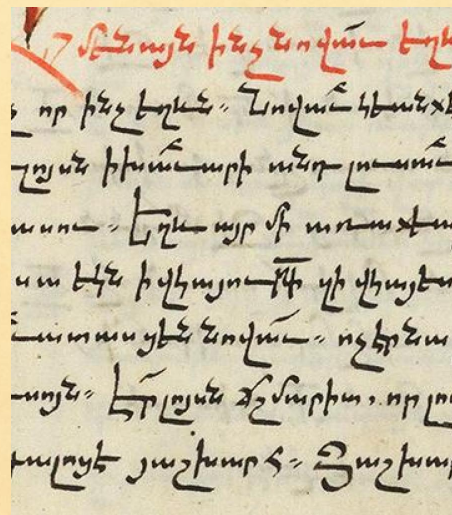 մենայն ինչ նովաւ եղև
որ ինչ եղեն։ Նովաւ կեան
լոյսն ի խաւարի անդ լուսաւ
ասու։ Եղև այր մի առաքեա
սա եկն ի վկայութի զի վկայես
հաւատասցեն նովաւ։ ոչ էր նա
սոյն։ Էր լոյսն ճշմարիտ, որ լու
գալոց է յաշխարհ։ Յաշխար